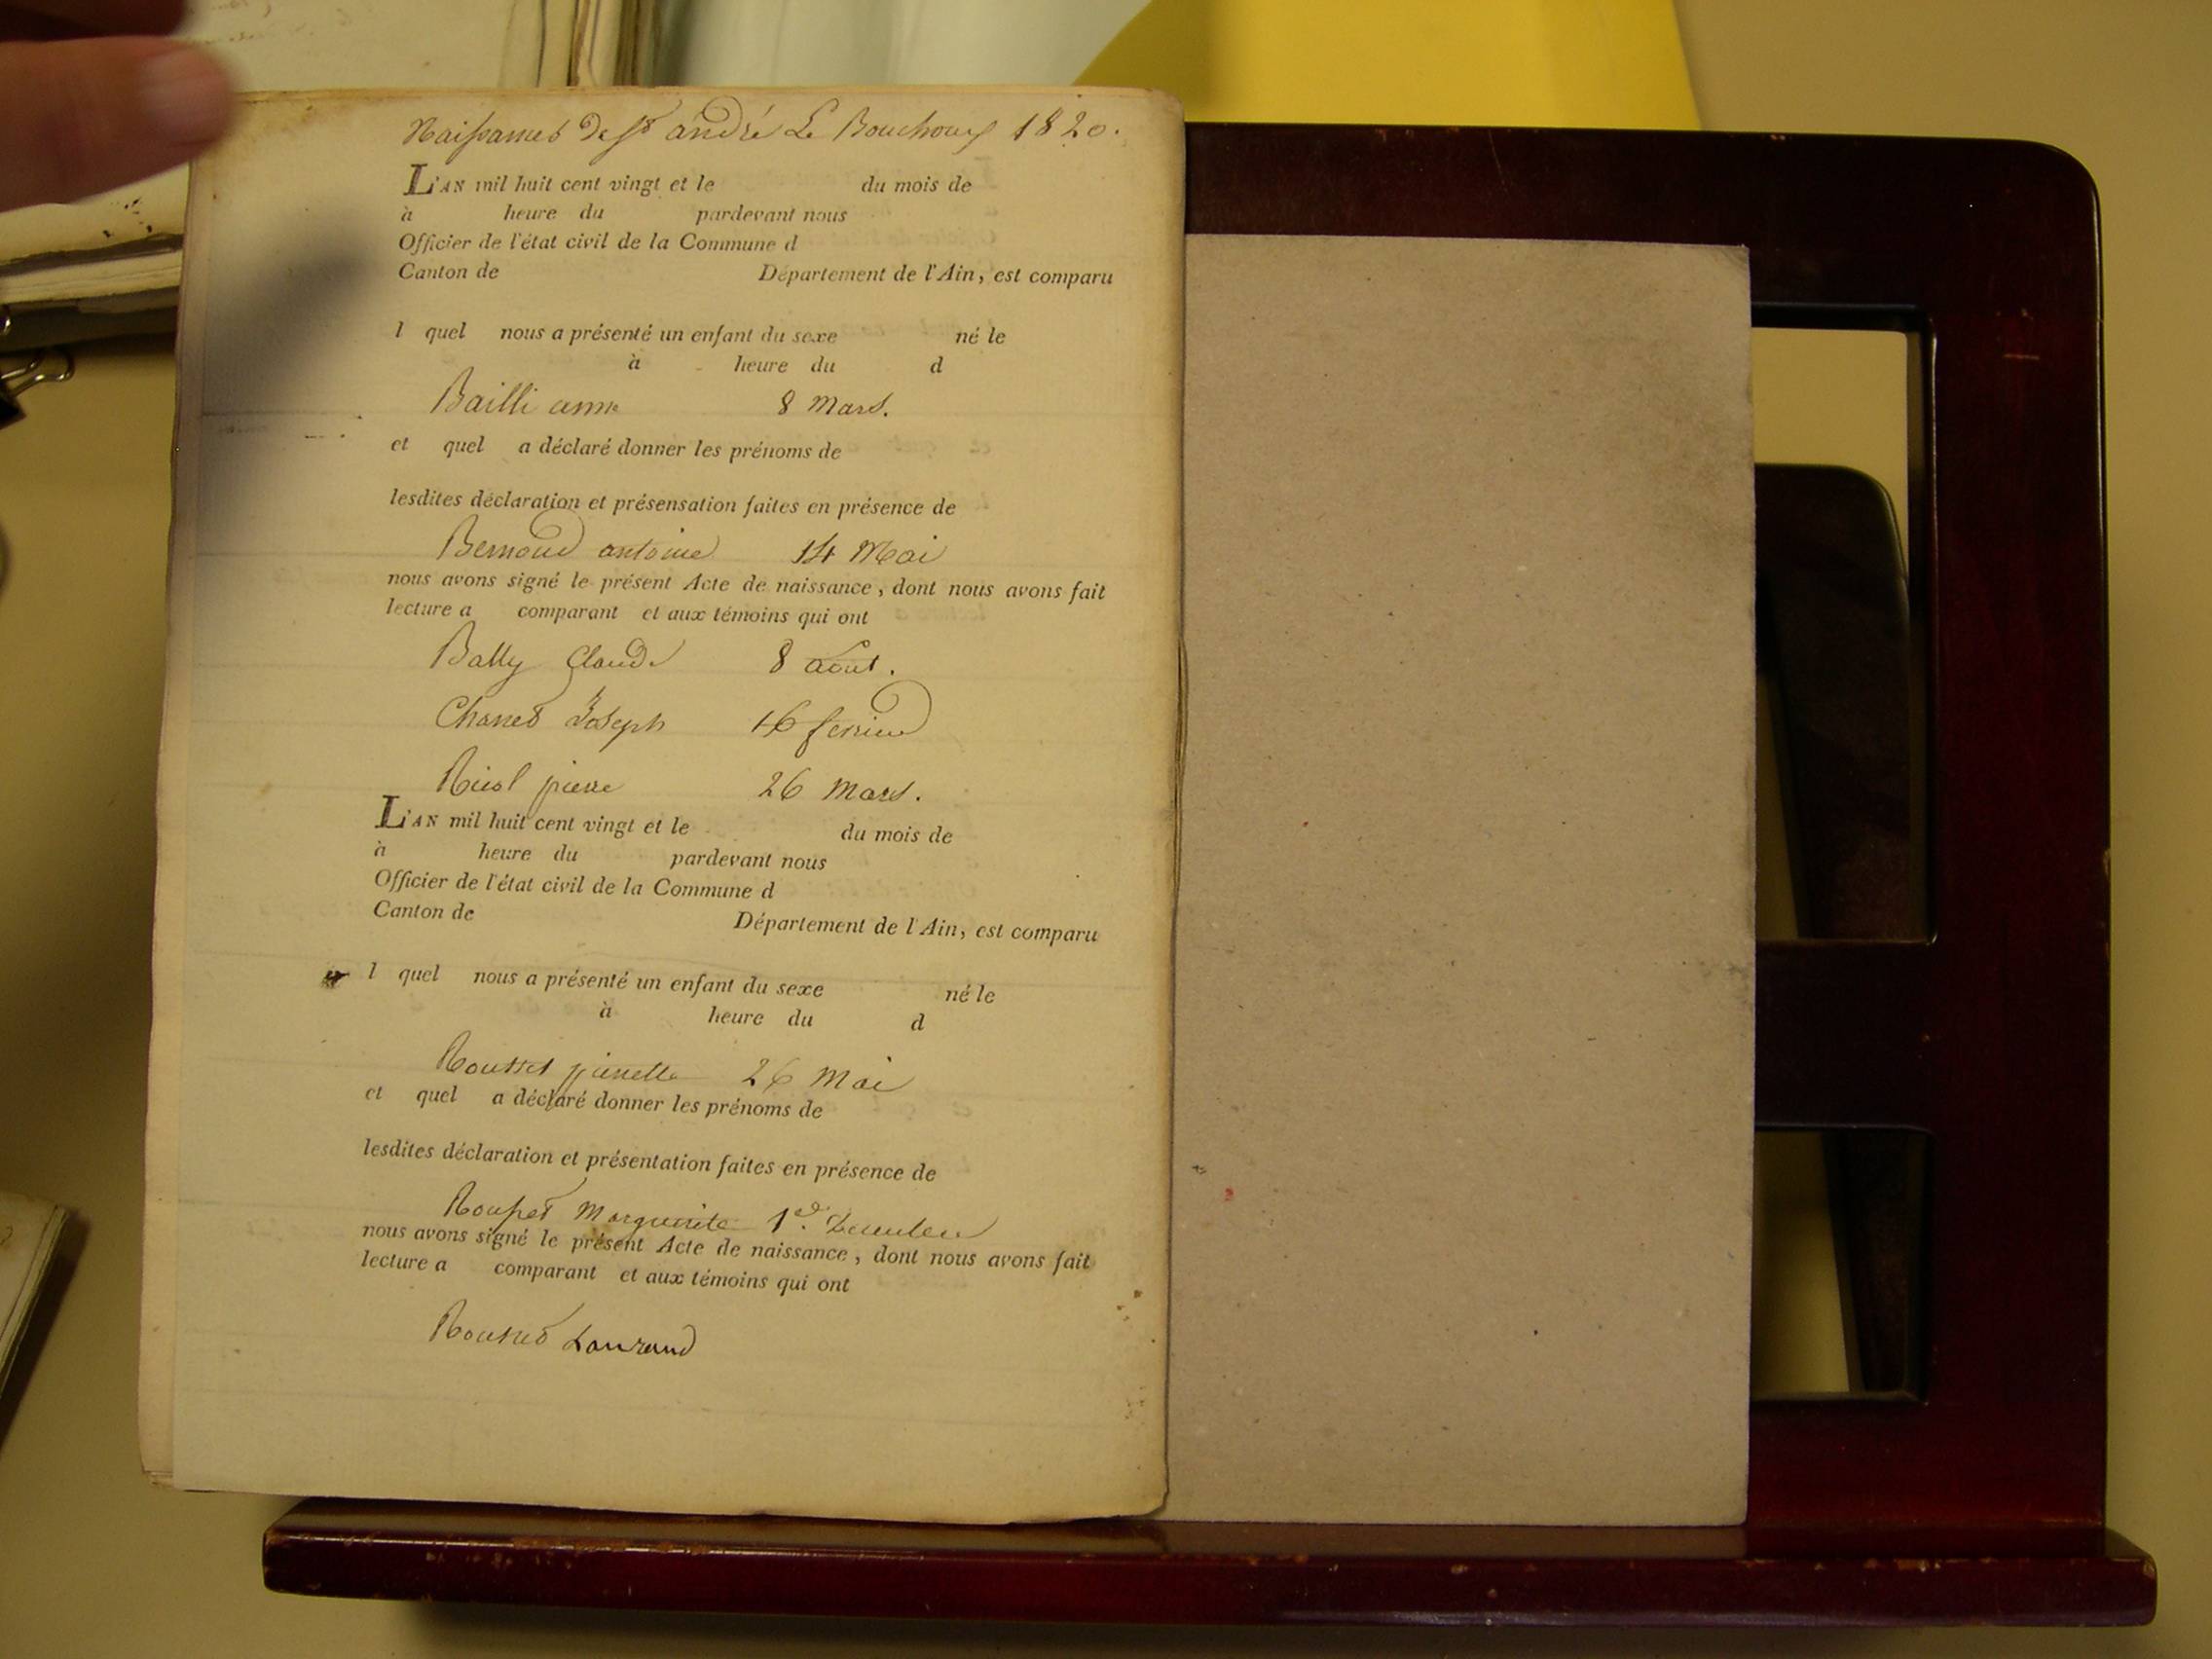 Naissances de St andré Le Bouchoux 1820.
L'AN mil huit cent vingt et le du mois de
à heure du pardevant nous
Officier de l'état civil de la Commune d
Canton de Département de l'Ain, est comparu
l quel nous a présenté un enfant du sexe né le
à heure du d
Bailli anne 8 Mars.
et quel a déclaré donner les prénoms de
lesdites déclaration et présensation faites en présence de
Bernoud antoine 14 Mai
nous avons signé le présent Acte de naissance, dont nous avons fait
lecture a comparant et aux témoins qui ont
Bally Claude 8 aout.
Chanel Joseph 16 fevrier
pierre 26 Mars.
L'AN mil huit cent vingt et le du mois de
à heure du pardevant nous
Officier de l'état civil de la Commune d
Canton de Département de l'Ain, est comparu
l quel nous a présenté un enfant du sexe né le
à heure du d
Rousset pierrette 26 Mai
et quel a déclaré donner les prénoms de
lesdites déclaration et présentation faites en présence de
Rousset Marguerite 1er Decembre
nous avons signé le présent Acte de naissance, dont nous avons fait
lecture a comparant et aux témoins qui ont
Rousset